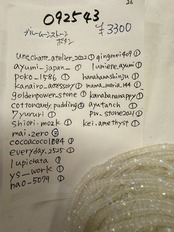 26
092543
ブルームーンストーン
ボタン
¥3300
une_charm_atelier_2022① qingmei409①
ayumi_japan_① luniere_ayumi①
poko_1586① hanahanashinju①
kaneiro_accessory① mana_maria_144①
goldenpower_stone① karabanamappy①
cottoncandy_pudding② ayutanch①
7yururi① pw_stone2021①
shiori.mozk① kei.amethyst①
mai.zero②
cocoacoco1004①
everyday.2525①
lupicdata①
ys__work①
nao_5079①